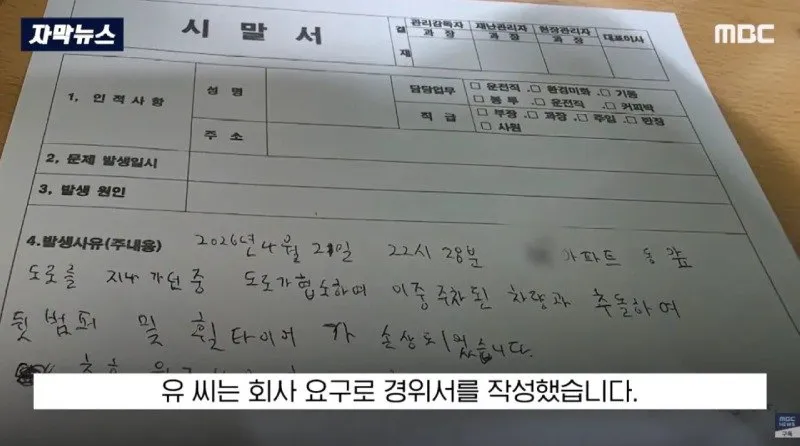 자막뉴스
MBC
시 말 서
결재
관리감독자 과 장
재난관리자 과 장
현장관리자 과 장
대표이사
1, 인 적 사 항
성 명
담당업무
□ 운전직 .□ 환경미화 .□ 기동
□ 농 루 .□ 운전직 .□ 커피박
직 급
□ 부장 .□ 과장 .□ 주임 .□ 반장
□ 사원
주 소
2, 문제 발생일시
3, 발생 원인
4.발생사유(주내용) 2026년 4월 21일 22시 28분 아파트 동 앞
도로를 지나 가던 중 도로가 협소하여 이중 주차된 차량과 추돌하여
뒷 범퍼 및 휠타이어 가 손상되었습니다.
유 씨는 회사 요구로 경위서를 작성했습니다.
MBC
NEWS
구독